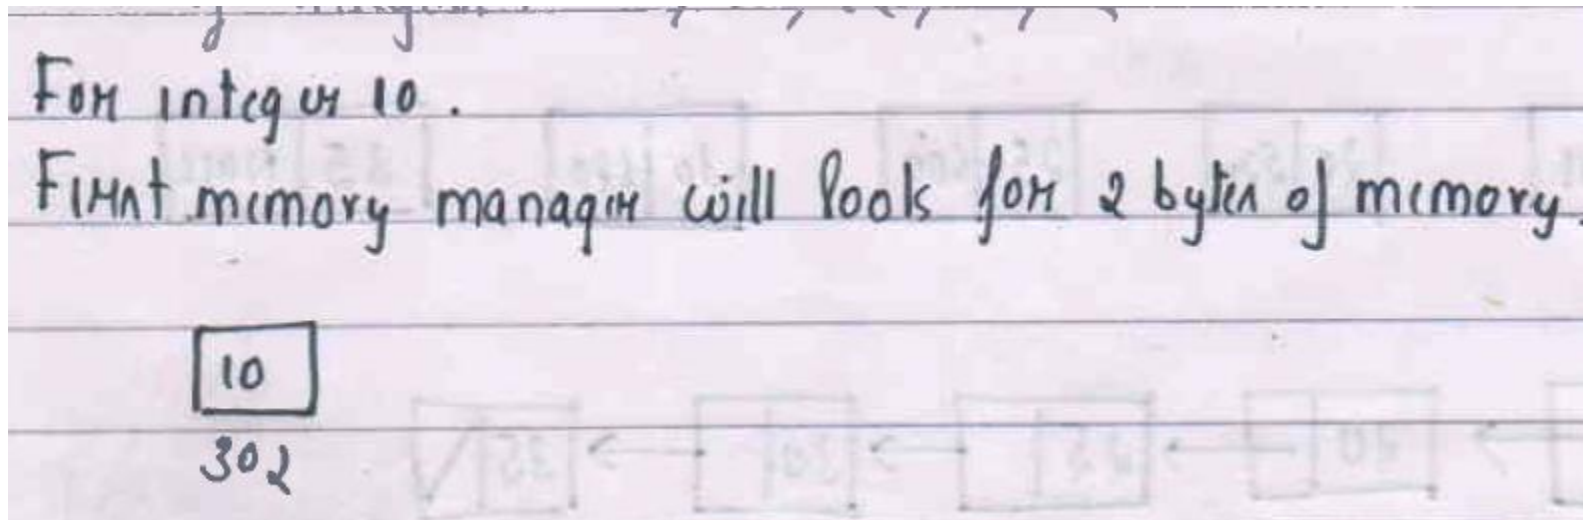 For integer 10.
First memory manager will looks for 2 bytes of memory.
10
302